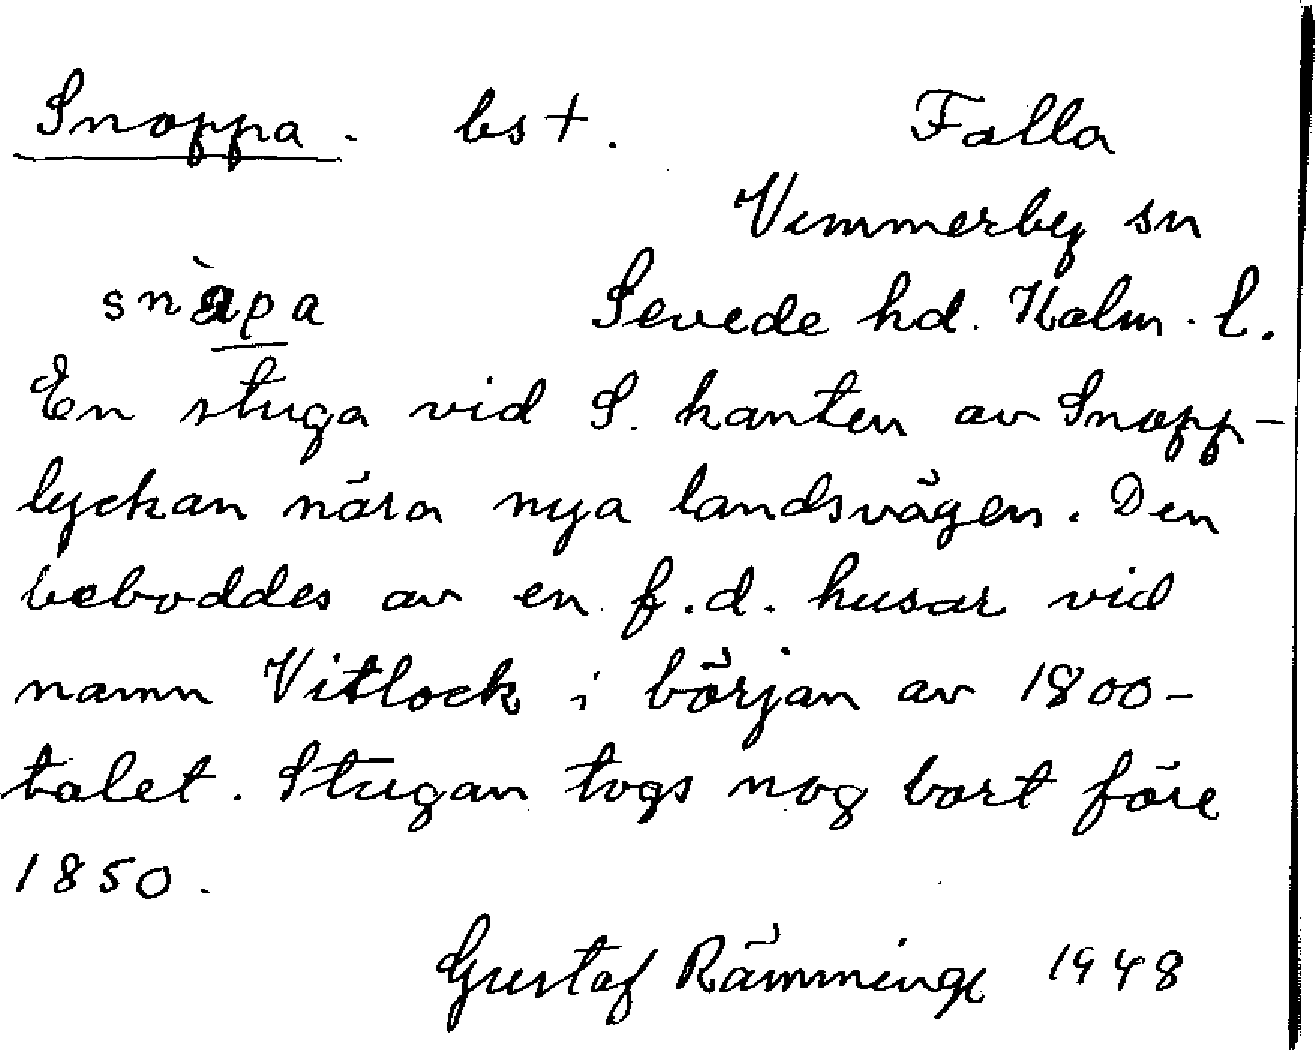 Snoppa. bs †. Falla
Vimmerby sn
snàpa Sevede hd. Kalm. l.
En stuga vid S. kanten av Snopp-
lyckan nära nya landsvägen. Den
beboddes av en f.d. husar vid
namn Vitlock i början av 1800-
talet. Stugan togs nog bort före
1850.
Gustaf Rämminge 1948